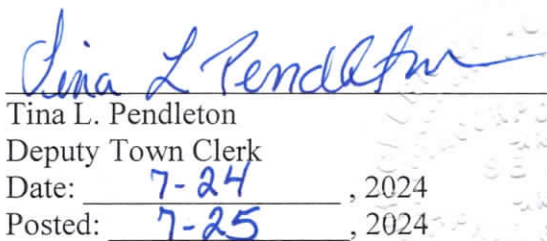 Tina L Pendleton
Tina L. Pendleton
Deputy Town Clerk
Date: 7-24, 2024
Posted: 7-25, 2024